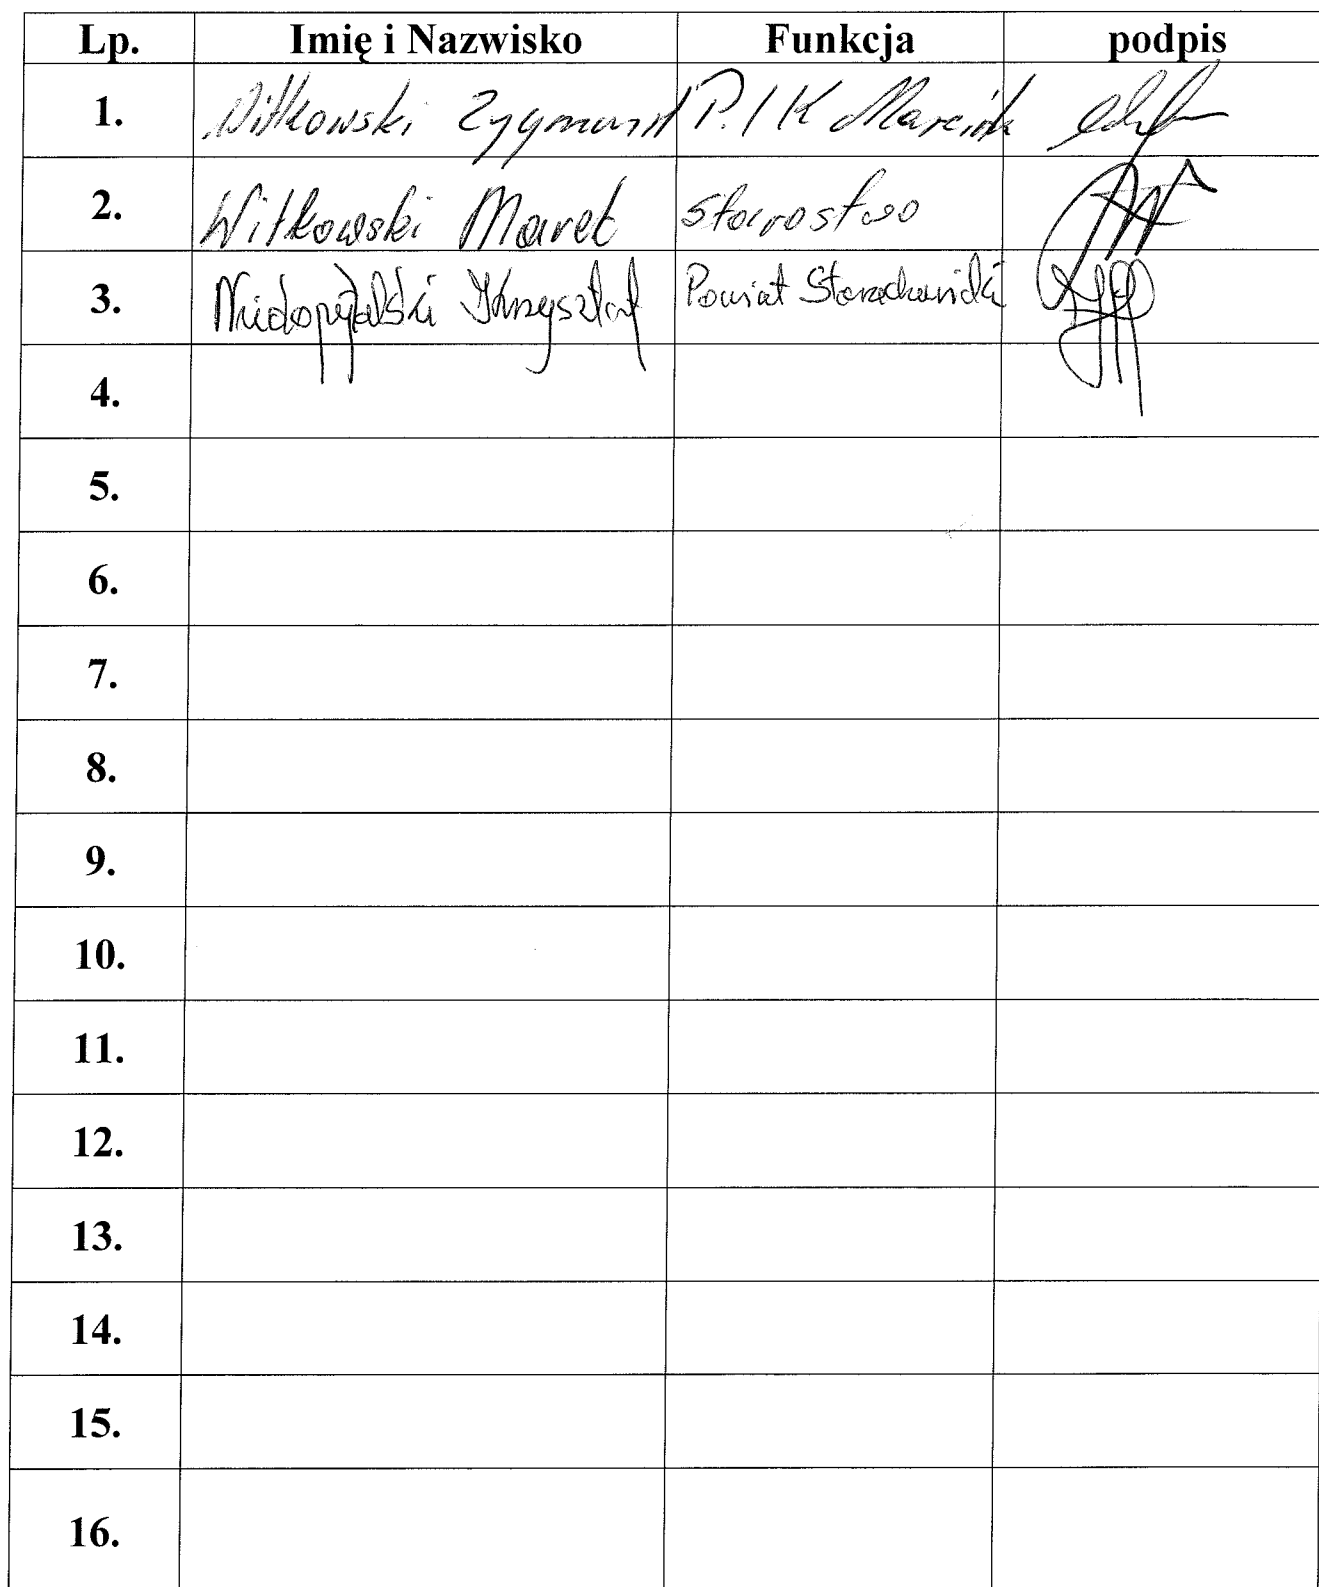 Lp. Imię i Nazwisko Funkcja podpis
1. Witkowski Zygmunt P.I K Marcink
2. Witkowski Marek Starostwo
3. Niedopytalski Krzysztof Powiat Starachowicki
4.
5.
6.
7.
8.
9.
10.
11.
12.
13.
14.
15.
16.